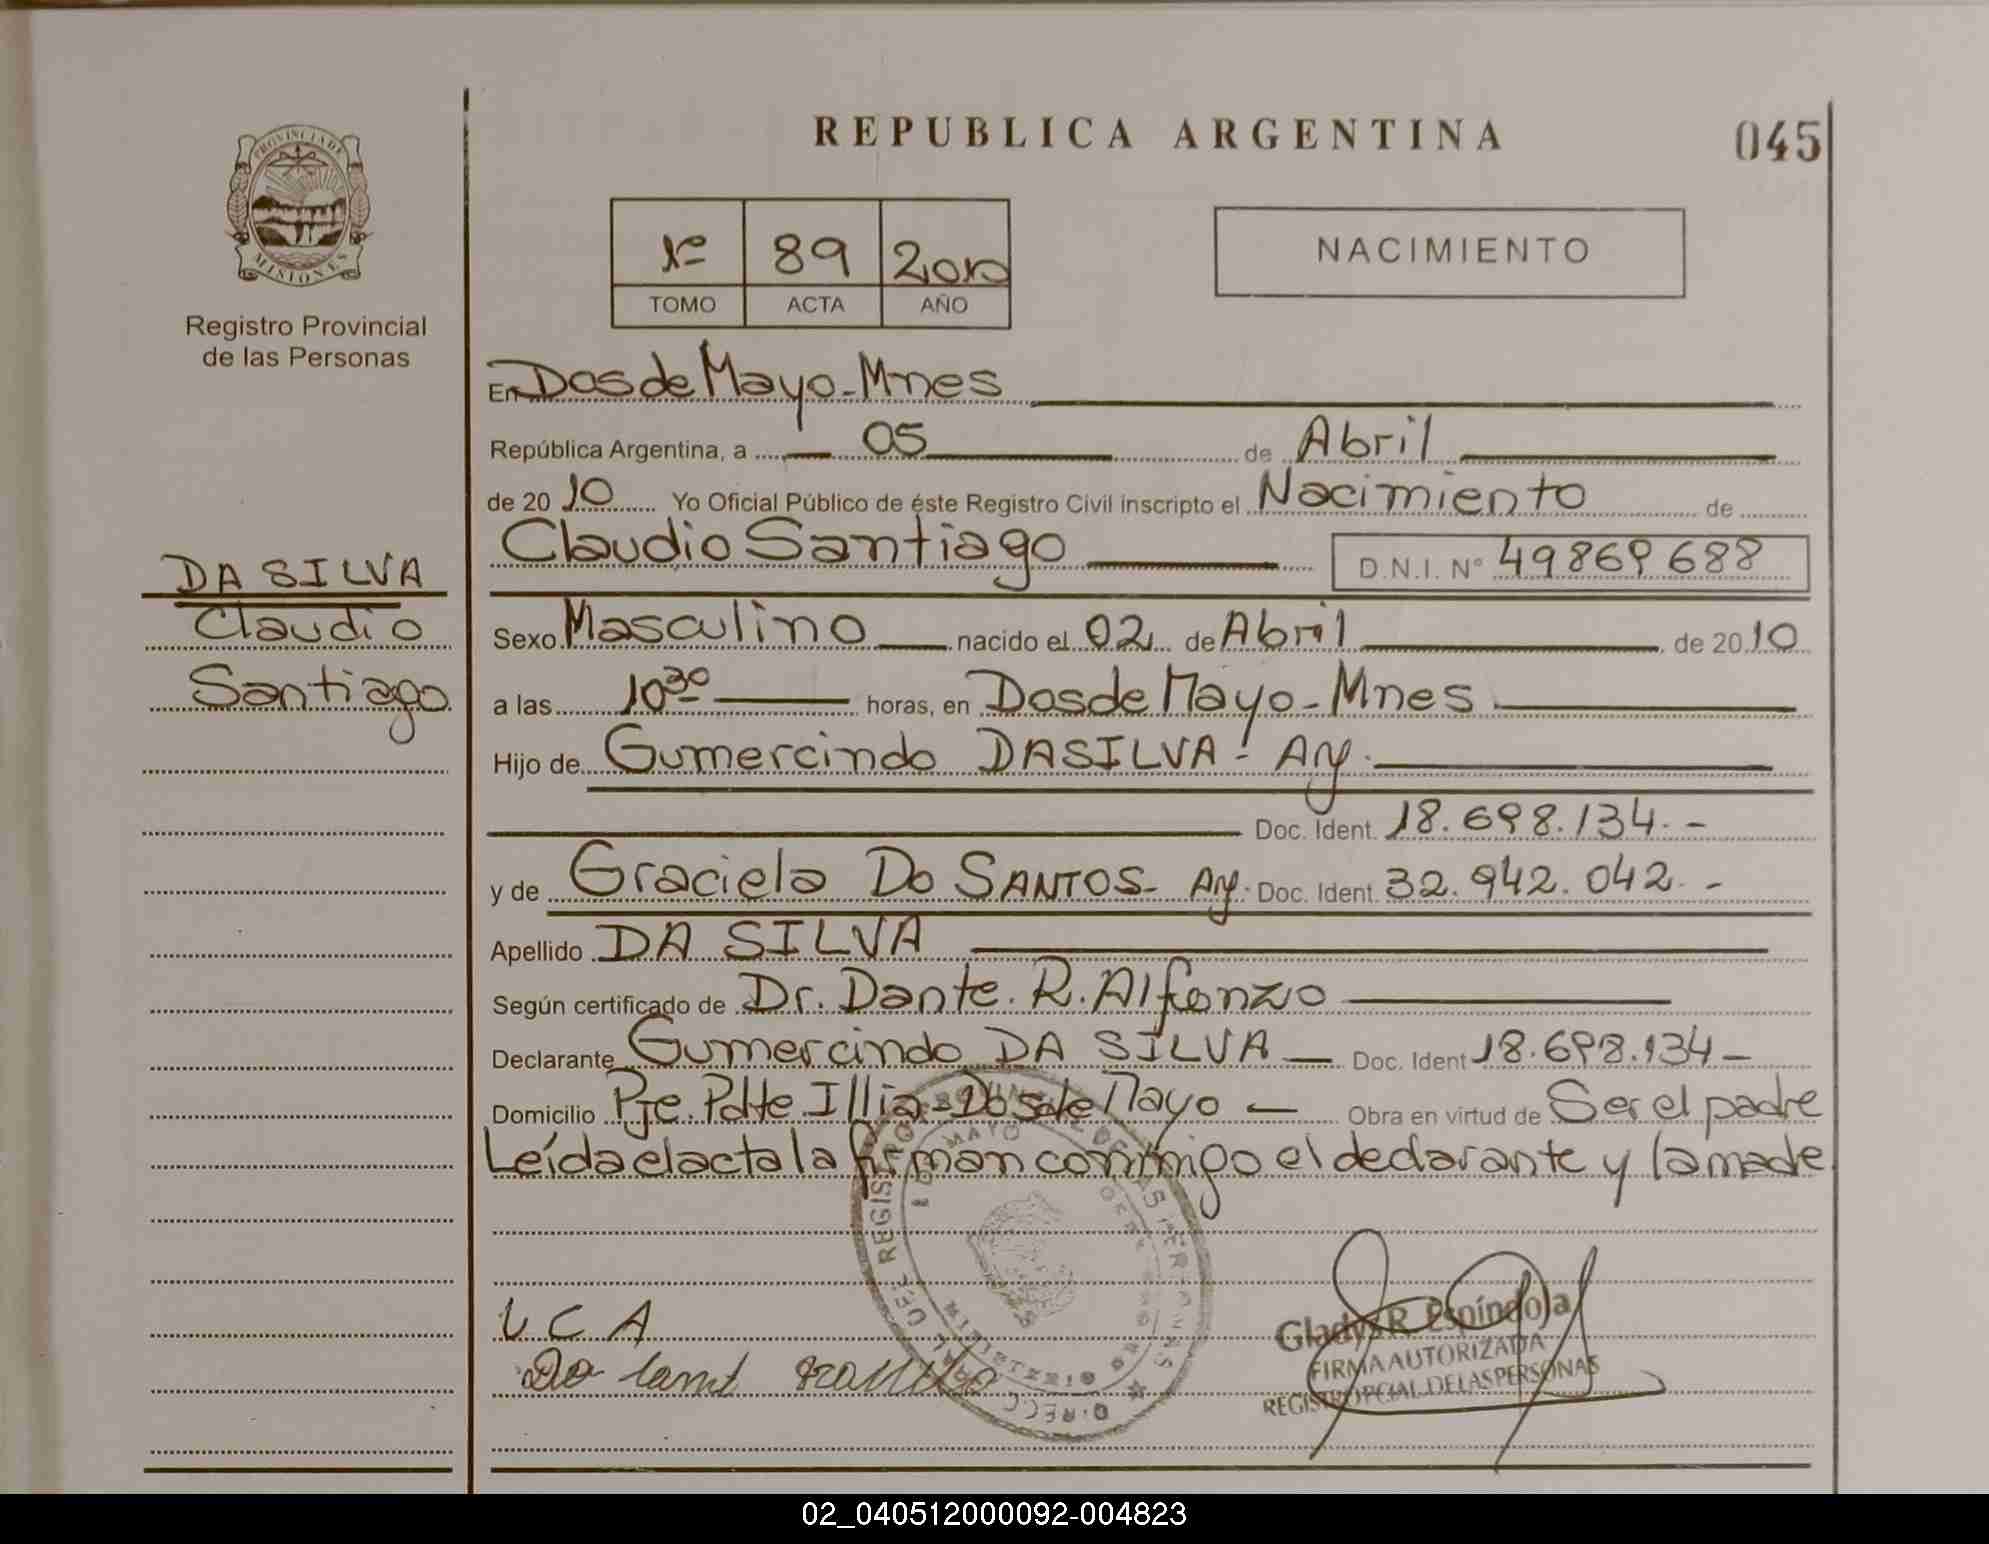 REPUBLICA ARGENTINA
045
PROVINCIA DE
MISIONES
Registro Provincial
de las Personas
1º 89 2010
TOMO ACTA AÑO
NACIMIENTO
En Dos de Mayo - Mnes
República Argentina, a 05 de Abril
de 2010 Yo Oficial Público de éste Registro Civil inscripto el Nacimiento de
Claudio Santiago D.N.I. Nº 49869688
DA SILVA
Claudio
Santiago
Sexo Masculino nacido el 02 de Abril de 2010
a las 10³⁰ horas, en Dos de Mayo - Mnes
Hijo de Gumercindo DA SILVA - Arg.
Doc. Ident. 18.698.134.-
y de Graciela Do SANTOS - Arg. Doc. Ident. 32.942.042.-
Apellido DA SILVA
Según certificado de Dr. Dante. R. Alfonzo
Declarante Gumercindo DA SILVA — Doc. Ident 18.698.134-
Domicilio Pje. Pdte. Illia - Dos de Mayo — Obra en virtud de Ser el padre
Leída el acta la firman conmigo el declarante y la madre
Gladys R. Espíndola
FIRMA AUTORIZADA
REGISTRO PCIAL. DE LAS PERSONAS
02_040512000092-004823